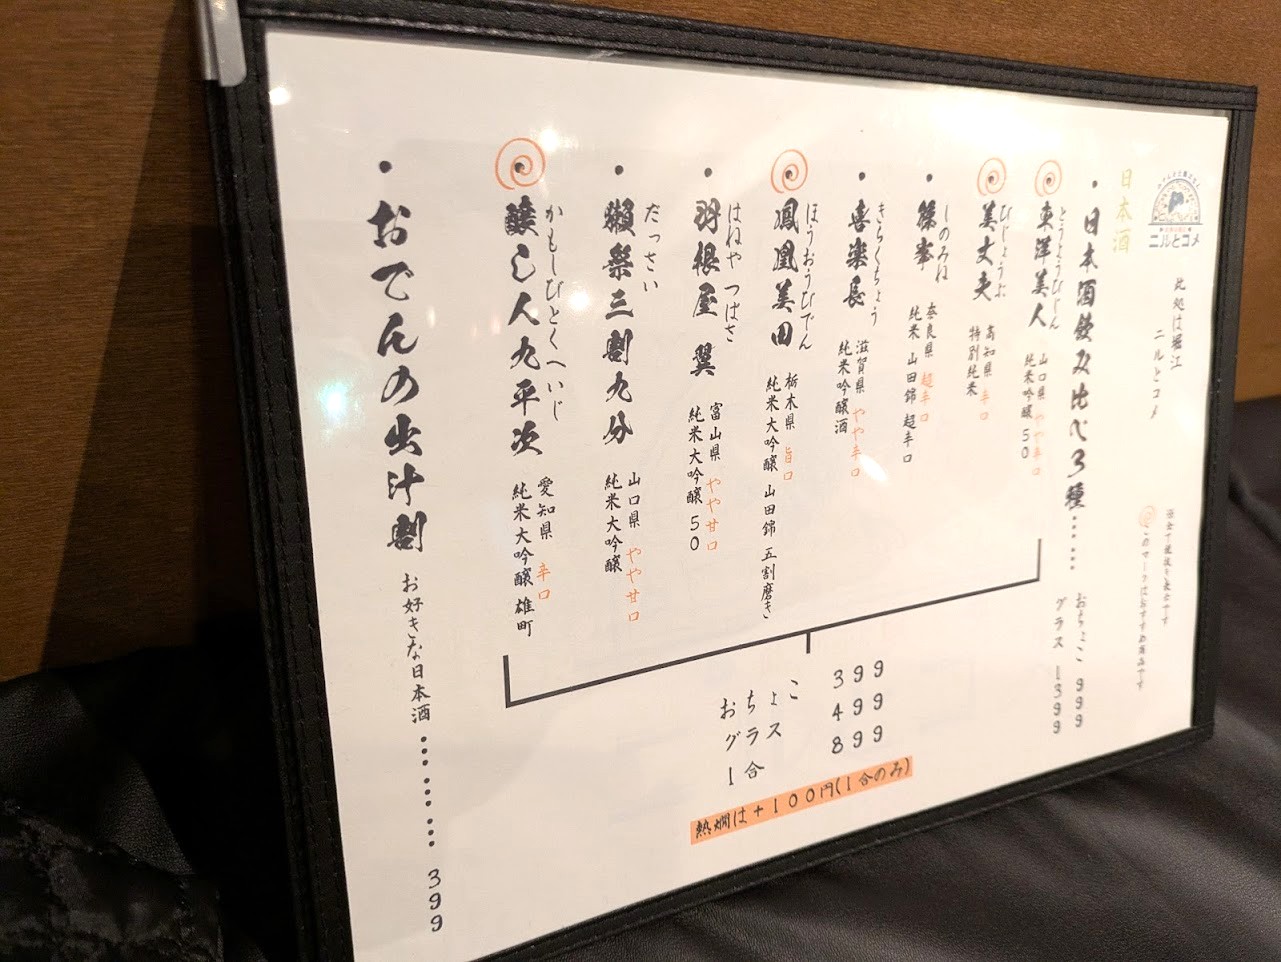 ニルとコメ
此処は堀江
ニルとコメ
現金で税抜き表示です
このマークはおすすめ商品です
日本酒
・日本酒飲み比べ3種……
おちょこ 999
グラス 1399
・東洋美人
とうようびじん
山口県 やや辛口
純米吟醸50
・美丈夫
びじょうぶ
高知県 辛口
特別純米
・篠峯
しのみね
奈良県 超辛口
純米 山田錦 超辛口
・喜楽長
きらくちょう
滋賀県 やや辛口
純米吟醸酒
・鳳凰美田
ほうおうびでん
栃木県 旨口
純米大吟醸 山田錦 五割磨き
・羽根屋 翼
はねや つばさ
富山県 やや甘口
純米大吟醸50
・獺祭三割九分
だっさい
山口県 やや甘口
純米大吟醸
・醸し人九平次
かもしびとくへいじ
愛知県 辛口
純米大吟醸 雄町
おちょこ 399
グラス 499
1合 899
熱燗は+100円(1合のみ)
・おでんの出汁割 お好きな日本酒………399